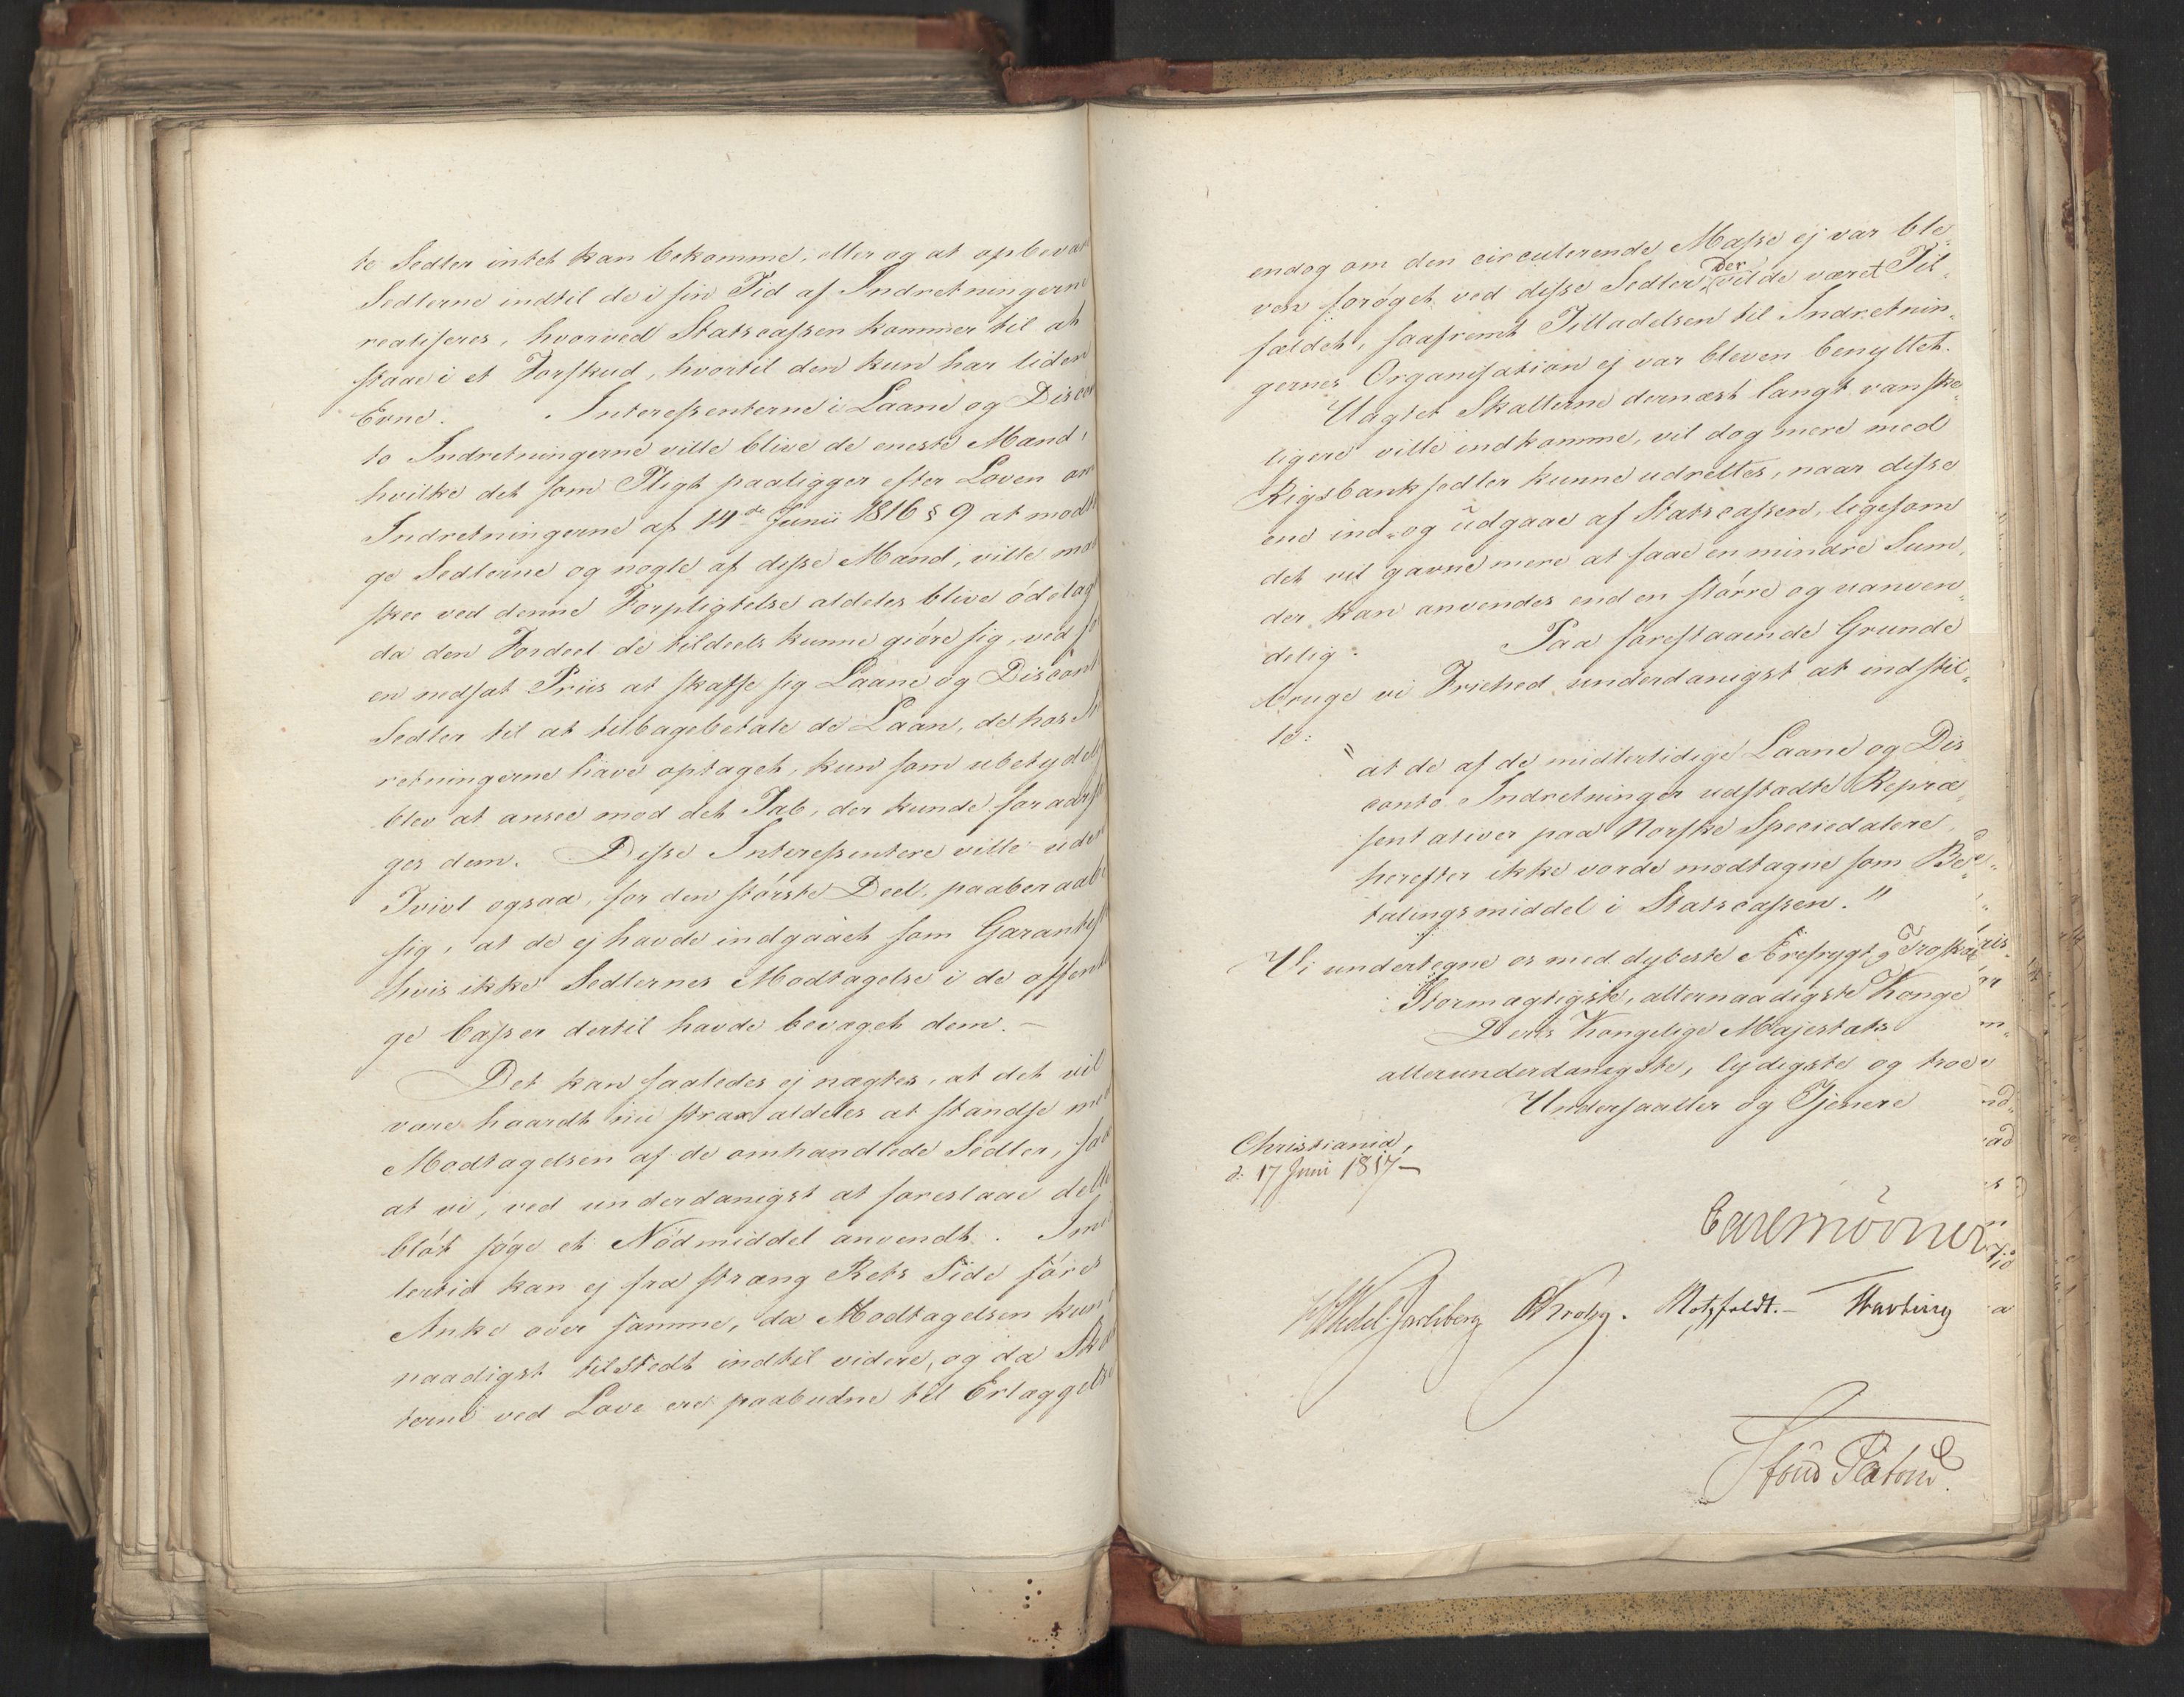 te Sedler intet kan bekomme, eller og at opbevar
Sedlerne indtil de i sin Tid af Indretningerne
realiseres, hvorved Statscassen kommer til at
staae i et Forskud, hvortil den kun har liden
Evne. Interessenterne i Laane og Discon
to Indretningerne ville blive de eneste Mænd,
hvilke det som Pligt paaligger efter Loven om
Indretningerne af 14de Junii 1816 § 9 at modta
ge Sedlerne og nogle af disse Mænd, ville maa
skee ved denne Forpligtelse aldeles blive ödelag
da den Fordeel de tildeels kunne giöre sig, ved fo
en nedsat Priis at skaffe sig Laane og Discont
Sedler til at tilbagebetale de Laan, de hos In
retningerne have optaget, kun som ubetydeli
blev at ansee mod det Tab, der kunde foraarsa
ges dem. Disse Interessentere ville uden
Tvivl ogsaa, for den störste Deel, paaberaabe
sig, at de ej havde indgaaet som Garantist
hvis ikke Sedlernes Modtagelse i de offentli
ge Casser dertil havde bevæget dem. –
Det kan saaledes ej nægtes, at det vil
være haardt nu strax aldeles at standse med
Modtagelsen af de omhandlede Sedler, saa
at vi, ved underdanigst at foreslaae dette
blot söge et Nödmiddel anvendt. Imid
lertid kan ej fra stræng Rets Side föres
Anke over samme, da Modtagelsen kun
naadigst tilstedt indtil videre, og da Skat
terne ved Love ere paabudne til Erlæggelse
endog om den circulerende Masse ej var ble-
ven foröget ved disse Sedler, der
vilde været Til-
fældet, saafremt Tilladelsen til Indretnin-
gernes Organisation ej var bleven benyttet.
Uagtet Skatterne dernæst langt vanske-
ligere ville indkomme, vil dog mere med
Rigsbanksedler kunne udrettes, naar disse
ene ind- og udgaae af Statscassen, ligesom
det vil gavne mere at faae en mindre Sum,
der kan anvendes end en större og uanven-
delig. Paa forestaaende Grunde
bruge vi Friehed underdanigst at indstil-
le:
"at de af de midlertidige Laane og Dis
conto Indretninger udstædte Repræ
sentativer paa Norske Speciedalere,
herefter ikke vorde modtagne som Be-
talingsmiddel i Statscassen."
Vi undertegne os med dybeste Ærefrygt og Troskab
Stormægtigste, allernaadigste Konge
Deres Kongelige Majestæts
allerunderdanigste, lydigste og troe
Undersaatter og Tjenere
Christiania,
d. 17 Juni 1817 –
Carl Mörner
HWedel Jarlsberg Krohg. Motzfeldt. –